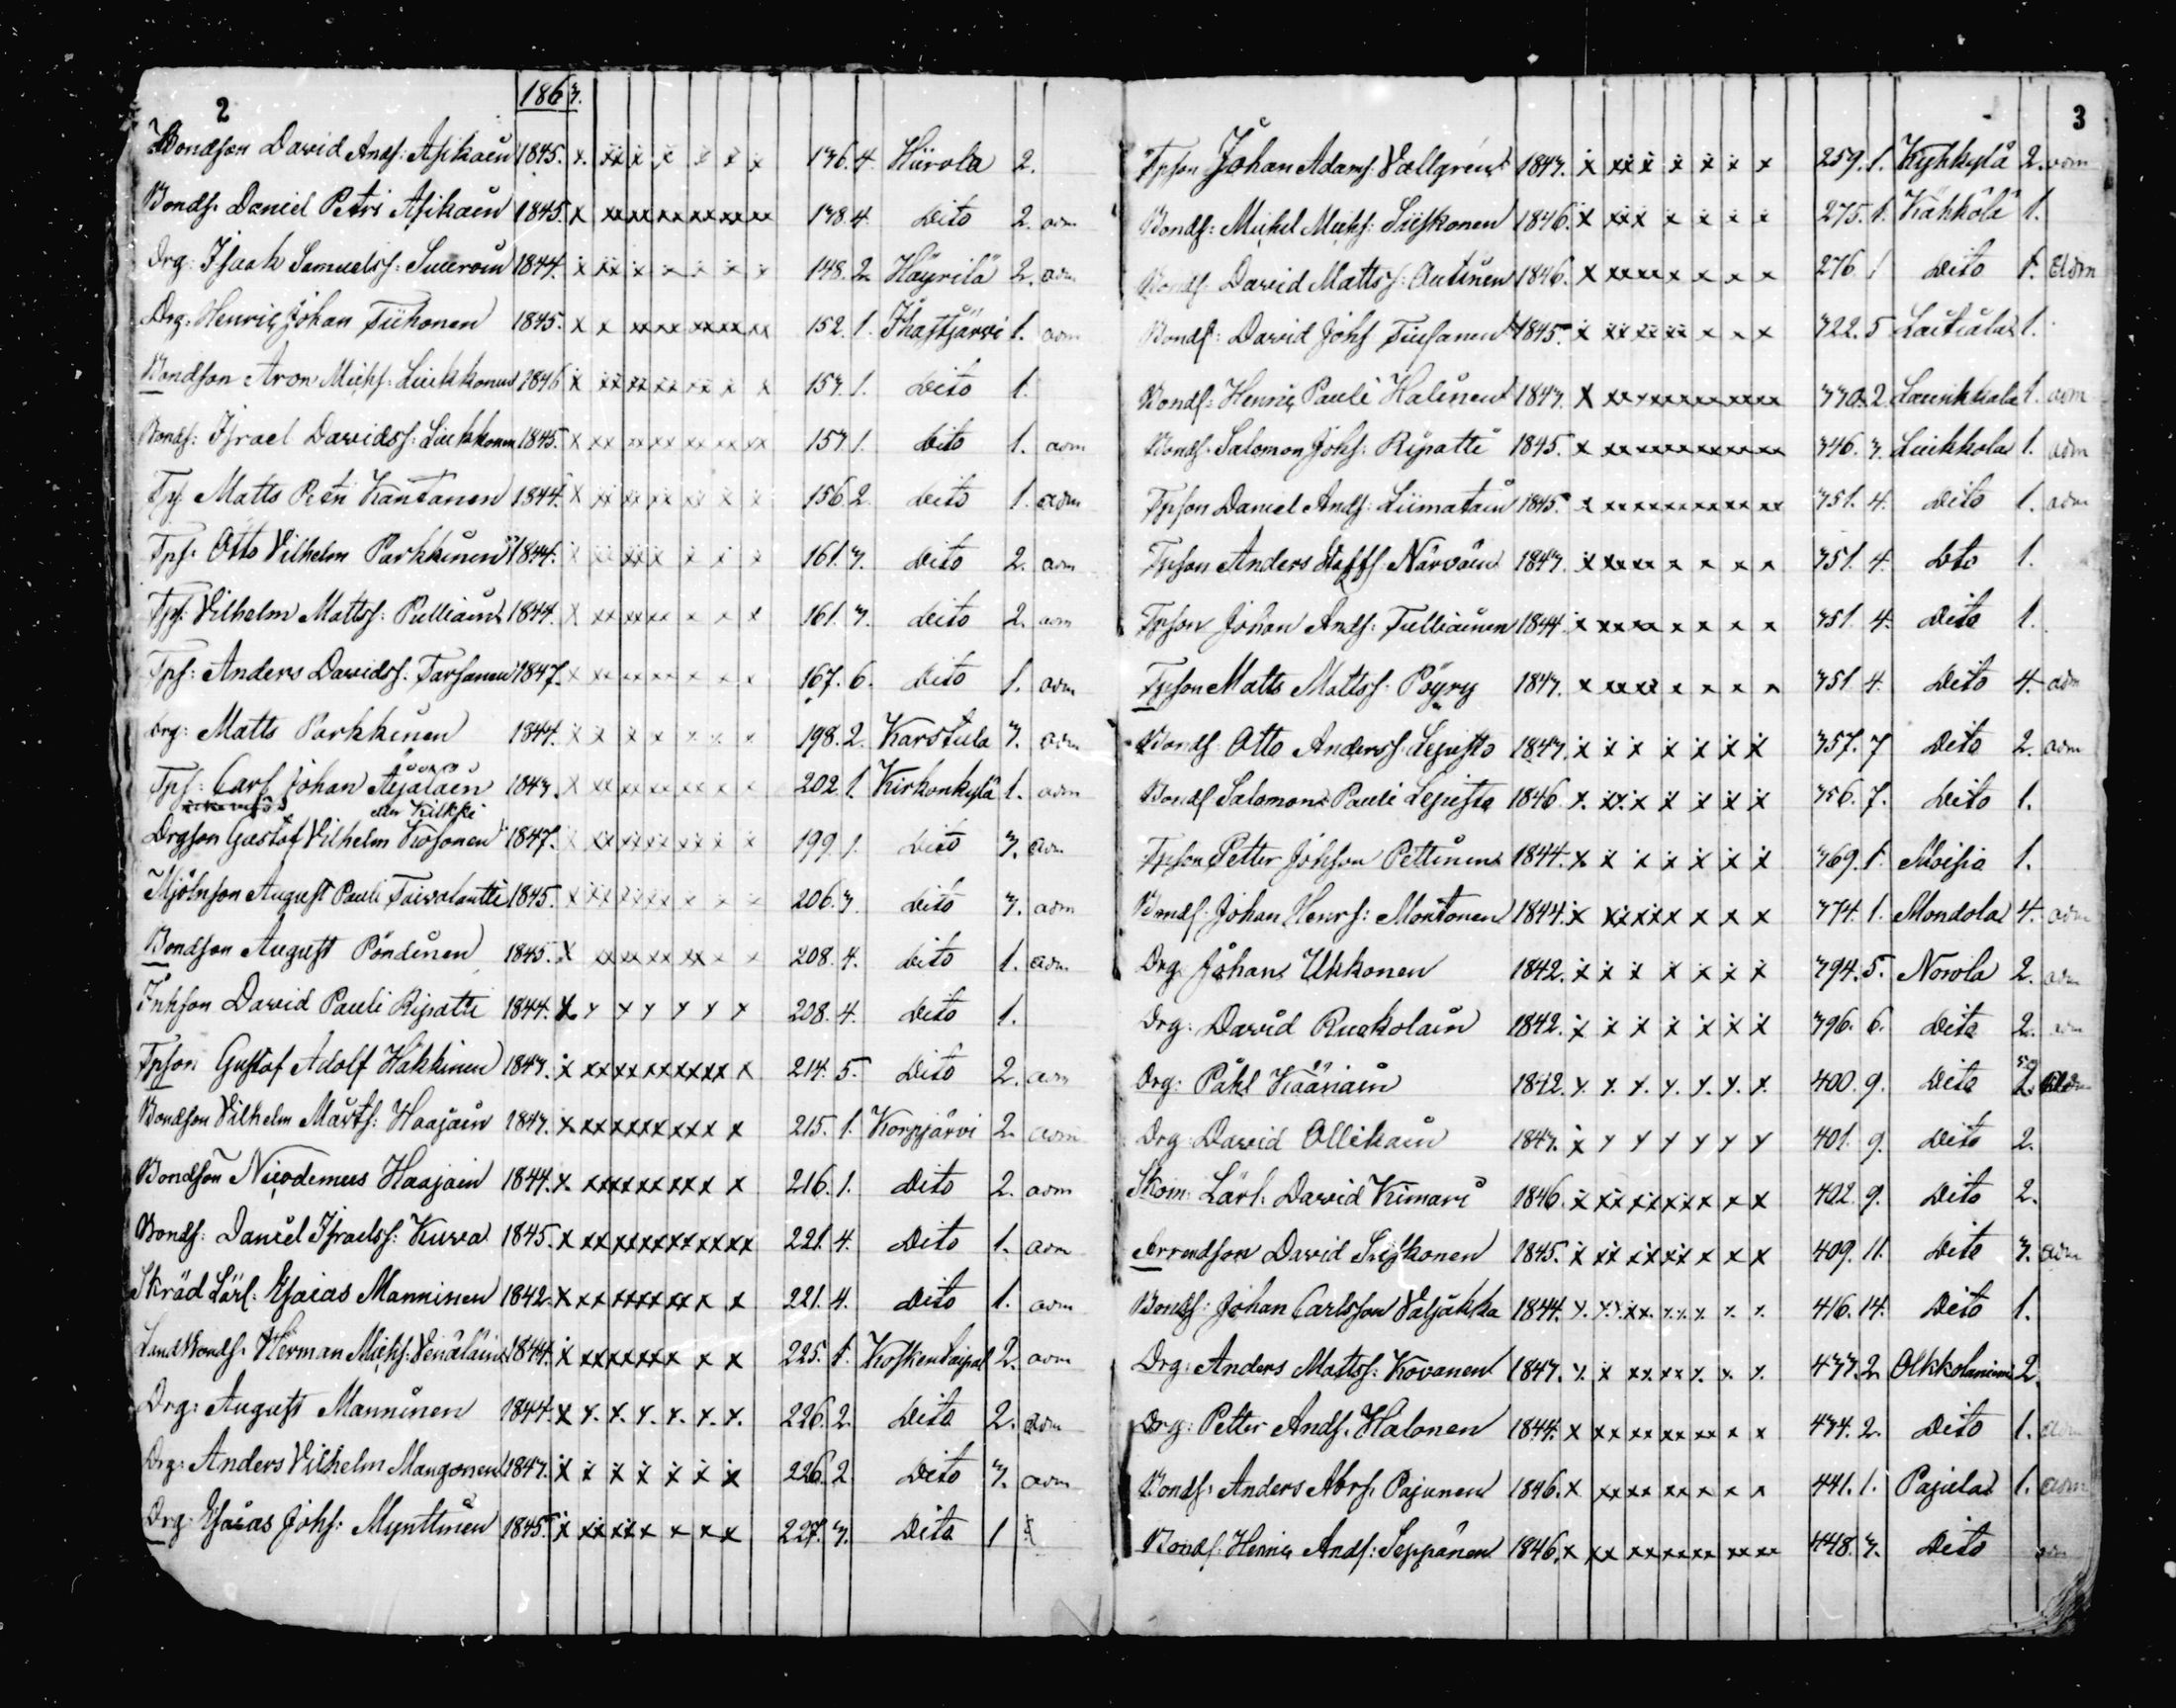 2
1863.
Bondson David Ands: Asikain 1845. x. xx x x x x x 136. 4. Hiirola 2.
Bonds. Daniel Petri Asikain 1845. x xx xx xx xx xx xx 138. 4. Dito 2. adm
Drg: Isaak Samuelss: Suuroin 1844. x xx x x x x x 148. 2. Häyrilä 2. adm
Drg: Henric Johan Tiihonen 1845. x x xx xx xx xx xx 152. 1. Ihastjärvi 1. adm
Bondson Aron Michs: Liukkonen 1846 x xx xx xx xx x x 153. 1. Dito 1.
Bonds: Israel Davidss: Liukkonen 1845. x xx xx xx xx xx xx 153. 1. Dito 1. adm
Tps Matts Petri Kantanen 1844. x xx xx xx xx x x 156. 2. Dito 1. adm
Tps: Otto Vilhelm Parkkinen 1844. x xx xx x x x x 161. 3. Dito 2. adm
Tps: Vilhelm Mattss: Pulliain 1844. x xx xx xx x x x 161. 3. Dito 2. adm
Tps: Anders Davidss. Tarsanen 1847. x xx xx xx x x x 167. 6. Dito 1. adm
Drg: Matts Parkkinen 1844. x x x x x x x 198. 2. Karstula 3. adm
Tps: Carl Johan Äijäläin 1843. x xx xx xx x x x 202. 1. Kirkonkylä 1. adm
eller Kilkki
Drgson Gustof Vilhelm Kosonen 1847. x xx xx xx xx x x 199. 1. Dito 3. adm
Mjölnson August Pauli Taivalantti 1845. x xx xx xx x x x 206. 3. Dito 3. adm
Bondson August Pöndinen 1845. x xx xx xx xx x x 208. 4. Dito 1. adm
Inhson David Pauli Ripatti 1844. x x x x x x x 208. 4. Dito 1.
Tpson Gustaf Adolf Hakkinen 1843. x xx xx xx xx xx x 214. 5. Dito 2. adm
Bondson Vilhelm Mårts: Haajain 1843. x xx xx xx xx x x 215. 1. Korpjärvi 2. adm
Bondson Nicodemus Haajain 1844. x. xx xx xx xx x x 216. 1. Dito 2. adm
Bonds: Daniel Israelss: Kuva 1845. x xx xx xx xx xx xx 221. 4. Dito 1. adm
Skräd Lärl: Esaias Manninen 1842. x xx xx xx xx x x 221. 4. Dito 1. adm
Land Bonds. Herman Michs: Venäläin 1844. x xx xx xx x x x 225. 1. Koskentaipal 2. adm
Drg: August Manninen 1844. x x. x. x. x. x. x. 226. 2. Dito 2. adm
Drg: Anders Vilhelm Mangonen 1843. x x x x x x x 226. 2 Dito 3. adm
Drg. Esaias Johs: Mynttinen 1845. x xx xx x x x x 227. 3. Dito 1
3
Tpson Johan Adams. Vallgren 1843. x xx x x x x x 259. 1. Kyhkylä 2. adm
Bonds: Mickel Michs: Siiskonen 1846. x xx x x x x x 275. 1. Kähkölä 1.
Bonds. David Mattss: Autinen 1846. x xx xx x x x x 276 1 Dito 1. adm
Bonds: David Johs Tiusanen 1845. x xx xx xx x x x 322. 5 Laitiala 1.
Bonds: Henric Pauli Halinen 1843. x xx xx xx xx xx xx 330. 2 Launikkala 1. adm
Bonds. Salomon Johs: Ripatti 1845. x xx xx xx xx xx xx 346. 3. Liukkola 1. adm
Tpson Daniel Ands: Liimatain 1845. x xx xx xx xx xx xx 351. 4. Dito 1. adm
Tpson Anders Staffs: Närväin 1843. x xx xx x x x x 351. 4. Dto 1.
Tpson Johan Ands: Tulliainen 1844. x xx xx x x x x 351. 4. Dito 1.
Tpson Matts Mattss: Pöyry 1843. x xx xx x x x x 351 4. Dito 4. adm
Bonds. Otto Anderss: Lepistö 1843. x x x x x x x 357. 7 Dito 2. adm
Bonds Salomon Pauli Lepistö 1846. x. xx. x x x x x 356. 7. Dito 1.
Tpson Petter Johsson Pettinen 1844. x x x x x x x 369. 1. Moisio 1.
Bonds. Johan Henrs: Montonen 1844. x xx xx x x x x 374. 1. Mondola 4. adm
Drg. Johan Ukkonen 1842. x x x x x x x 394. 5. Norola 2. adm
Drg: David Ruokolain 1842. x x x x x x x 396. 6. Dito 2. adm
Drg: Påhl Kääriäin 1842. x. x. x. x. x. x. x. 400. 9. Dito 2. adm
Drg David Ollikain 1843. x x x x x x x 401. 9. Dito 2.
Skom: Lärl. David Kimari 1846. x xx xx xx x x x 402. 9. Dito 2.
Arrendson David Siiskonen 1845. x xx xx xx x x x 409. 11. Dito 3. adm
Bonds: Johan Carlsson Valjakka 1844. x. xx. xx. xx. x. x. x. 416. 14. Dito 1.
Drg: Anders Mattss: Kovanen 1843. x. x xx xx x. x. x. 433. 2 Olkkolaniemi 2.
Drg: Petter Ands. Halonen 1844. x xx xx xx xx x x 434. 2. Dito 1. adm
Bonds. Anders Abrs. Pajunen 1846. x xx xx xx x x x 441. 1. Pajula 1. adm
Bonds: Henric Ands: Seppänen 1846. x xx xx xx xx xx xx 448. 3. Dito adm